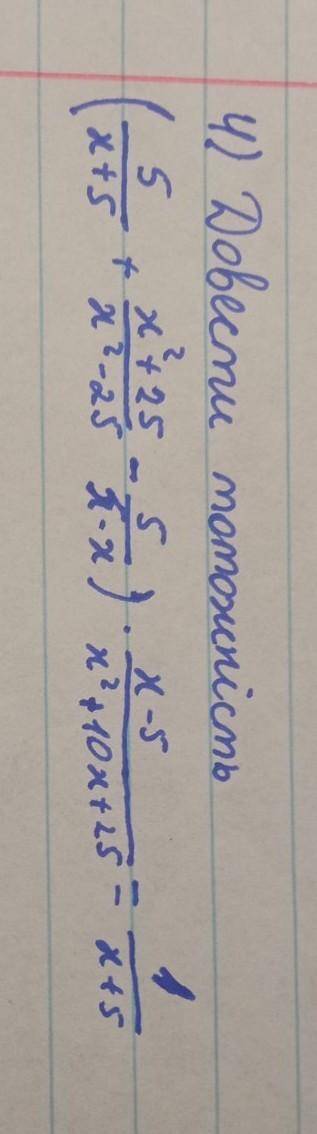 4) Довести тотожність
(5/(x+5) + (x²+25)/(x²-25) - 5/(5-x)) · (x-5)/(x²+10x+25) = 1/(x+5)